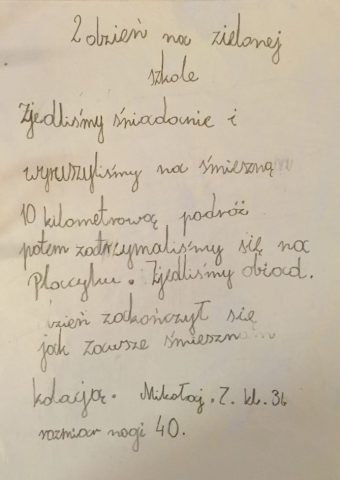 2 dzień na zielonej
szkole
Zjedliśmy śniadanie i
wyruszyliśmy na śmieszną
10 kilometrową podróż
potem zatrzymaliśmy się na
Placcyku. Zjedliśmy obiad.
dzień zakończył się
jak zawsze śmieszną
kolacją. Mikołaj. Z. kl. 3b
rozmiar nogi 40.